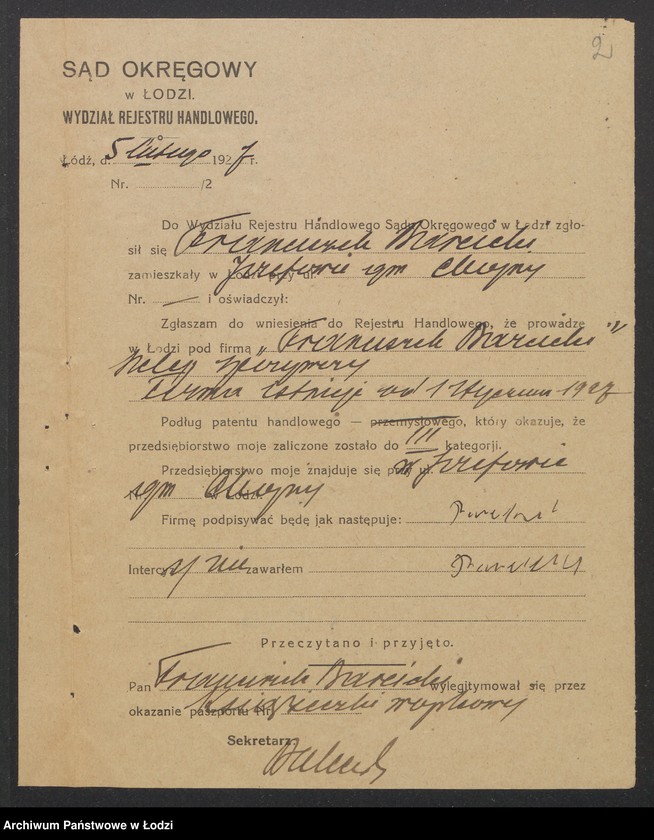 2
SĄD OKRĘGOWY
w ŁODZI.
WYDZIAŁ REJESTRU HANDLOWEGO.
Łódź, d. 5 lutego 1927 r.
Nr. /2
Do Wydziału Rejestru Handlowego Sądu Okręgowego w Łodzi zgło-
sił się Franciszek Barcicki
zamieszkały w Łodzi przy ul. Józefowie gm Chojny
Nr. — i oświadczył:
Zgłaszam do wniesienia do Rejestru Handlowego, że prowadzę
w Łodzi pod firmą „Franciszek Barcicki”
sklep spożywczy
Firma istnieje od 1 stycznia 1927
Podług patentu handlowego — przemysłowego, który okazuję, że
przedsiębiorstwo moje zaliczone zostało do III kategorji.
Przedsiębiorstwo moje znajduje się przy ul. w Józefowie
gm Chojny w Łodzi.
Firmę podpisywać będę jak następuje:
Intercyzy nie zawarłem
Przeczytano i przyjęto.
Pan Franciszek Barcicki wylegitymował się przez
okazanie paszportu Nr. książeczki wojskowej
Sekretarz
Archiwum Państwowe w Łodzi